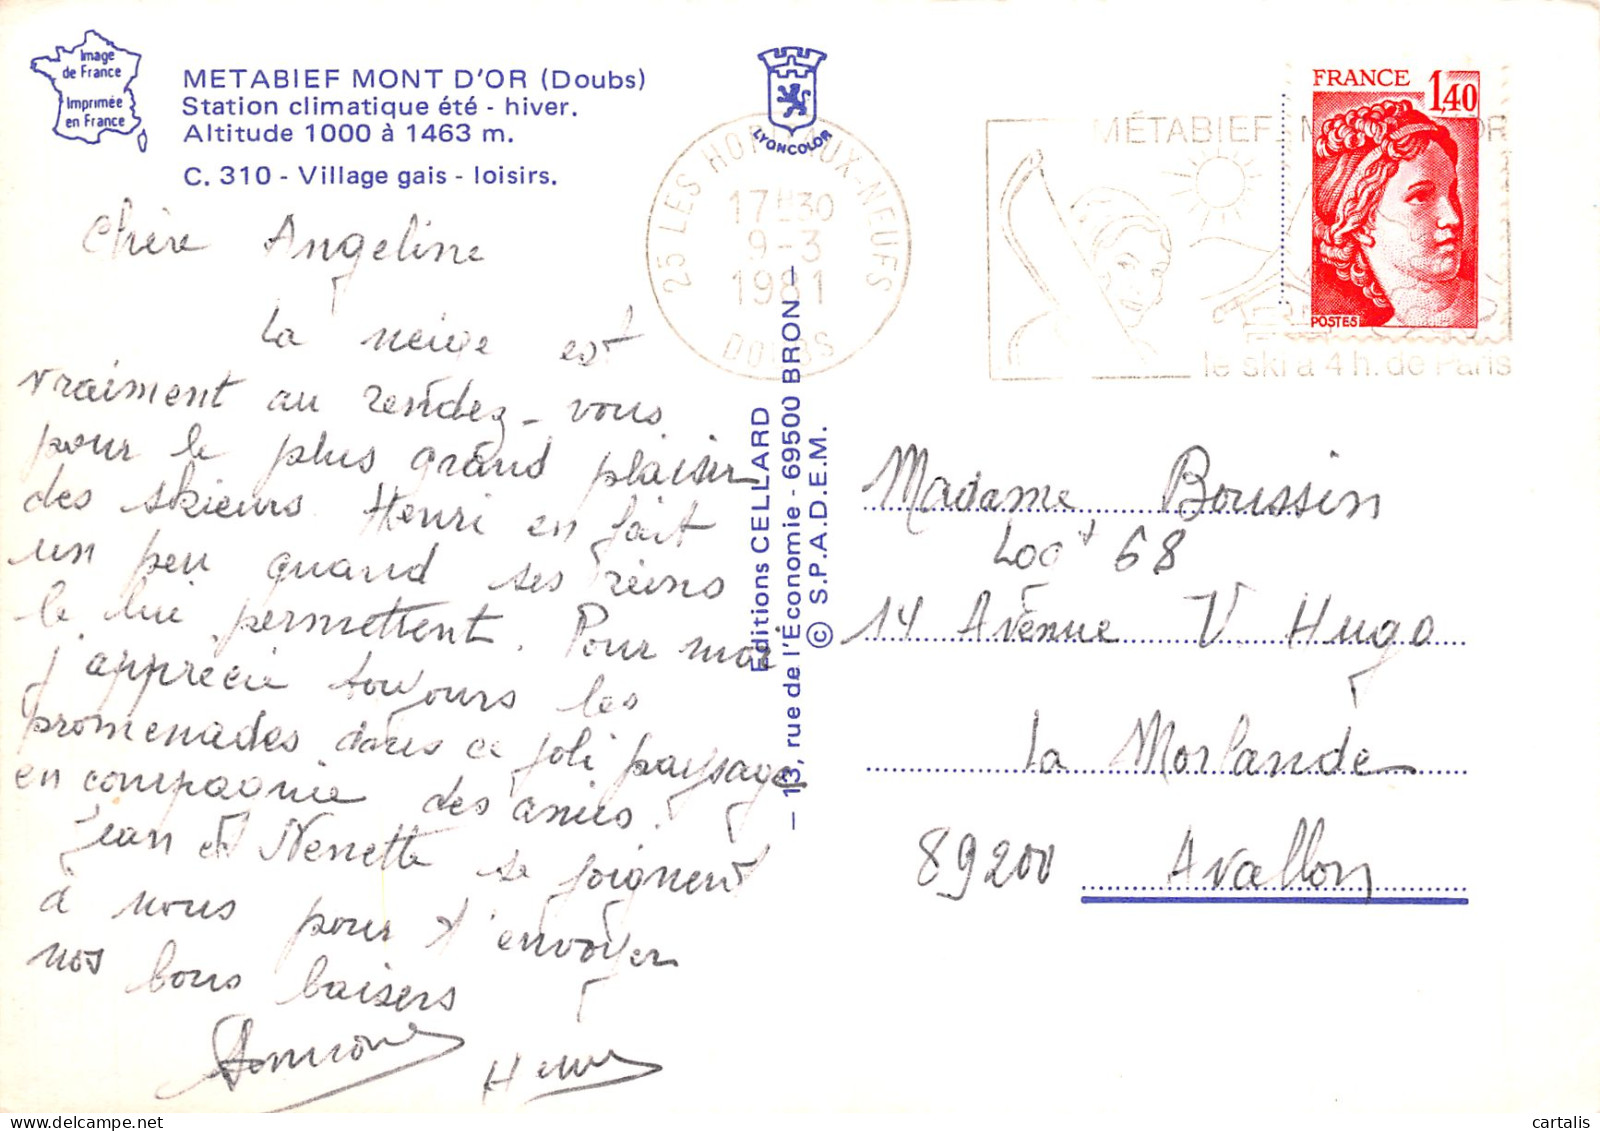 Image
de France
Imprimée
en France
METABIEF MONT D'OR (Doubs)
Station climatique été - hiver.
Altitude 1000 à 1463 m.
C. 310 - Village gais - loisirs.
Chère Angeline
La neige est
vraiment au rendez-vous
pour le plus grand plaisir
des skieurs. Henri en fait
un peu quand ses reins
le lui permettent. Pour moi
j'apprécie toujours les
promenades dans ce joli paysage
en compagnie des amies.
Jean et Nenette se joignent
à nous pour t'envoyer
nos bons baisers
Henri
LYONCOLOR
Editions CELLARD
— 13, rue de l'Économie - 69500 BRON —
© S.P.A.D.E.M.
25 LES HOPITAUX-NEUFS
17H30
9-3
1981
DOUBS
MÉTABIEF
le ski à 4 h. de Paris
FRANCE 1,40
POSTES
Madame Boussin
Logt 68
14 Avenue V. Hugo
La Morlande
89200 Avallon
cartalis